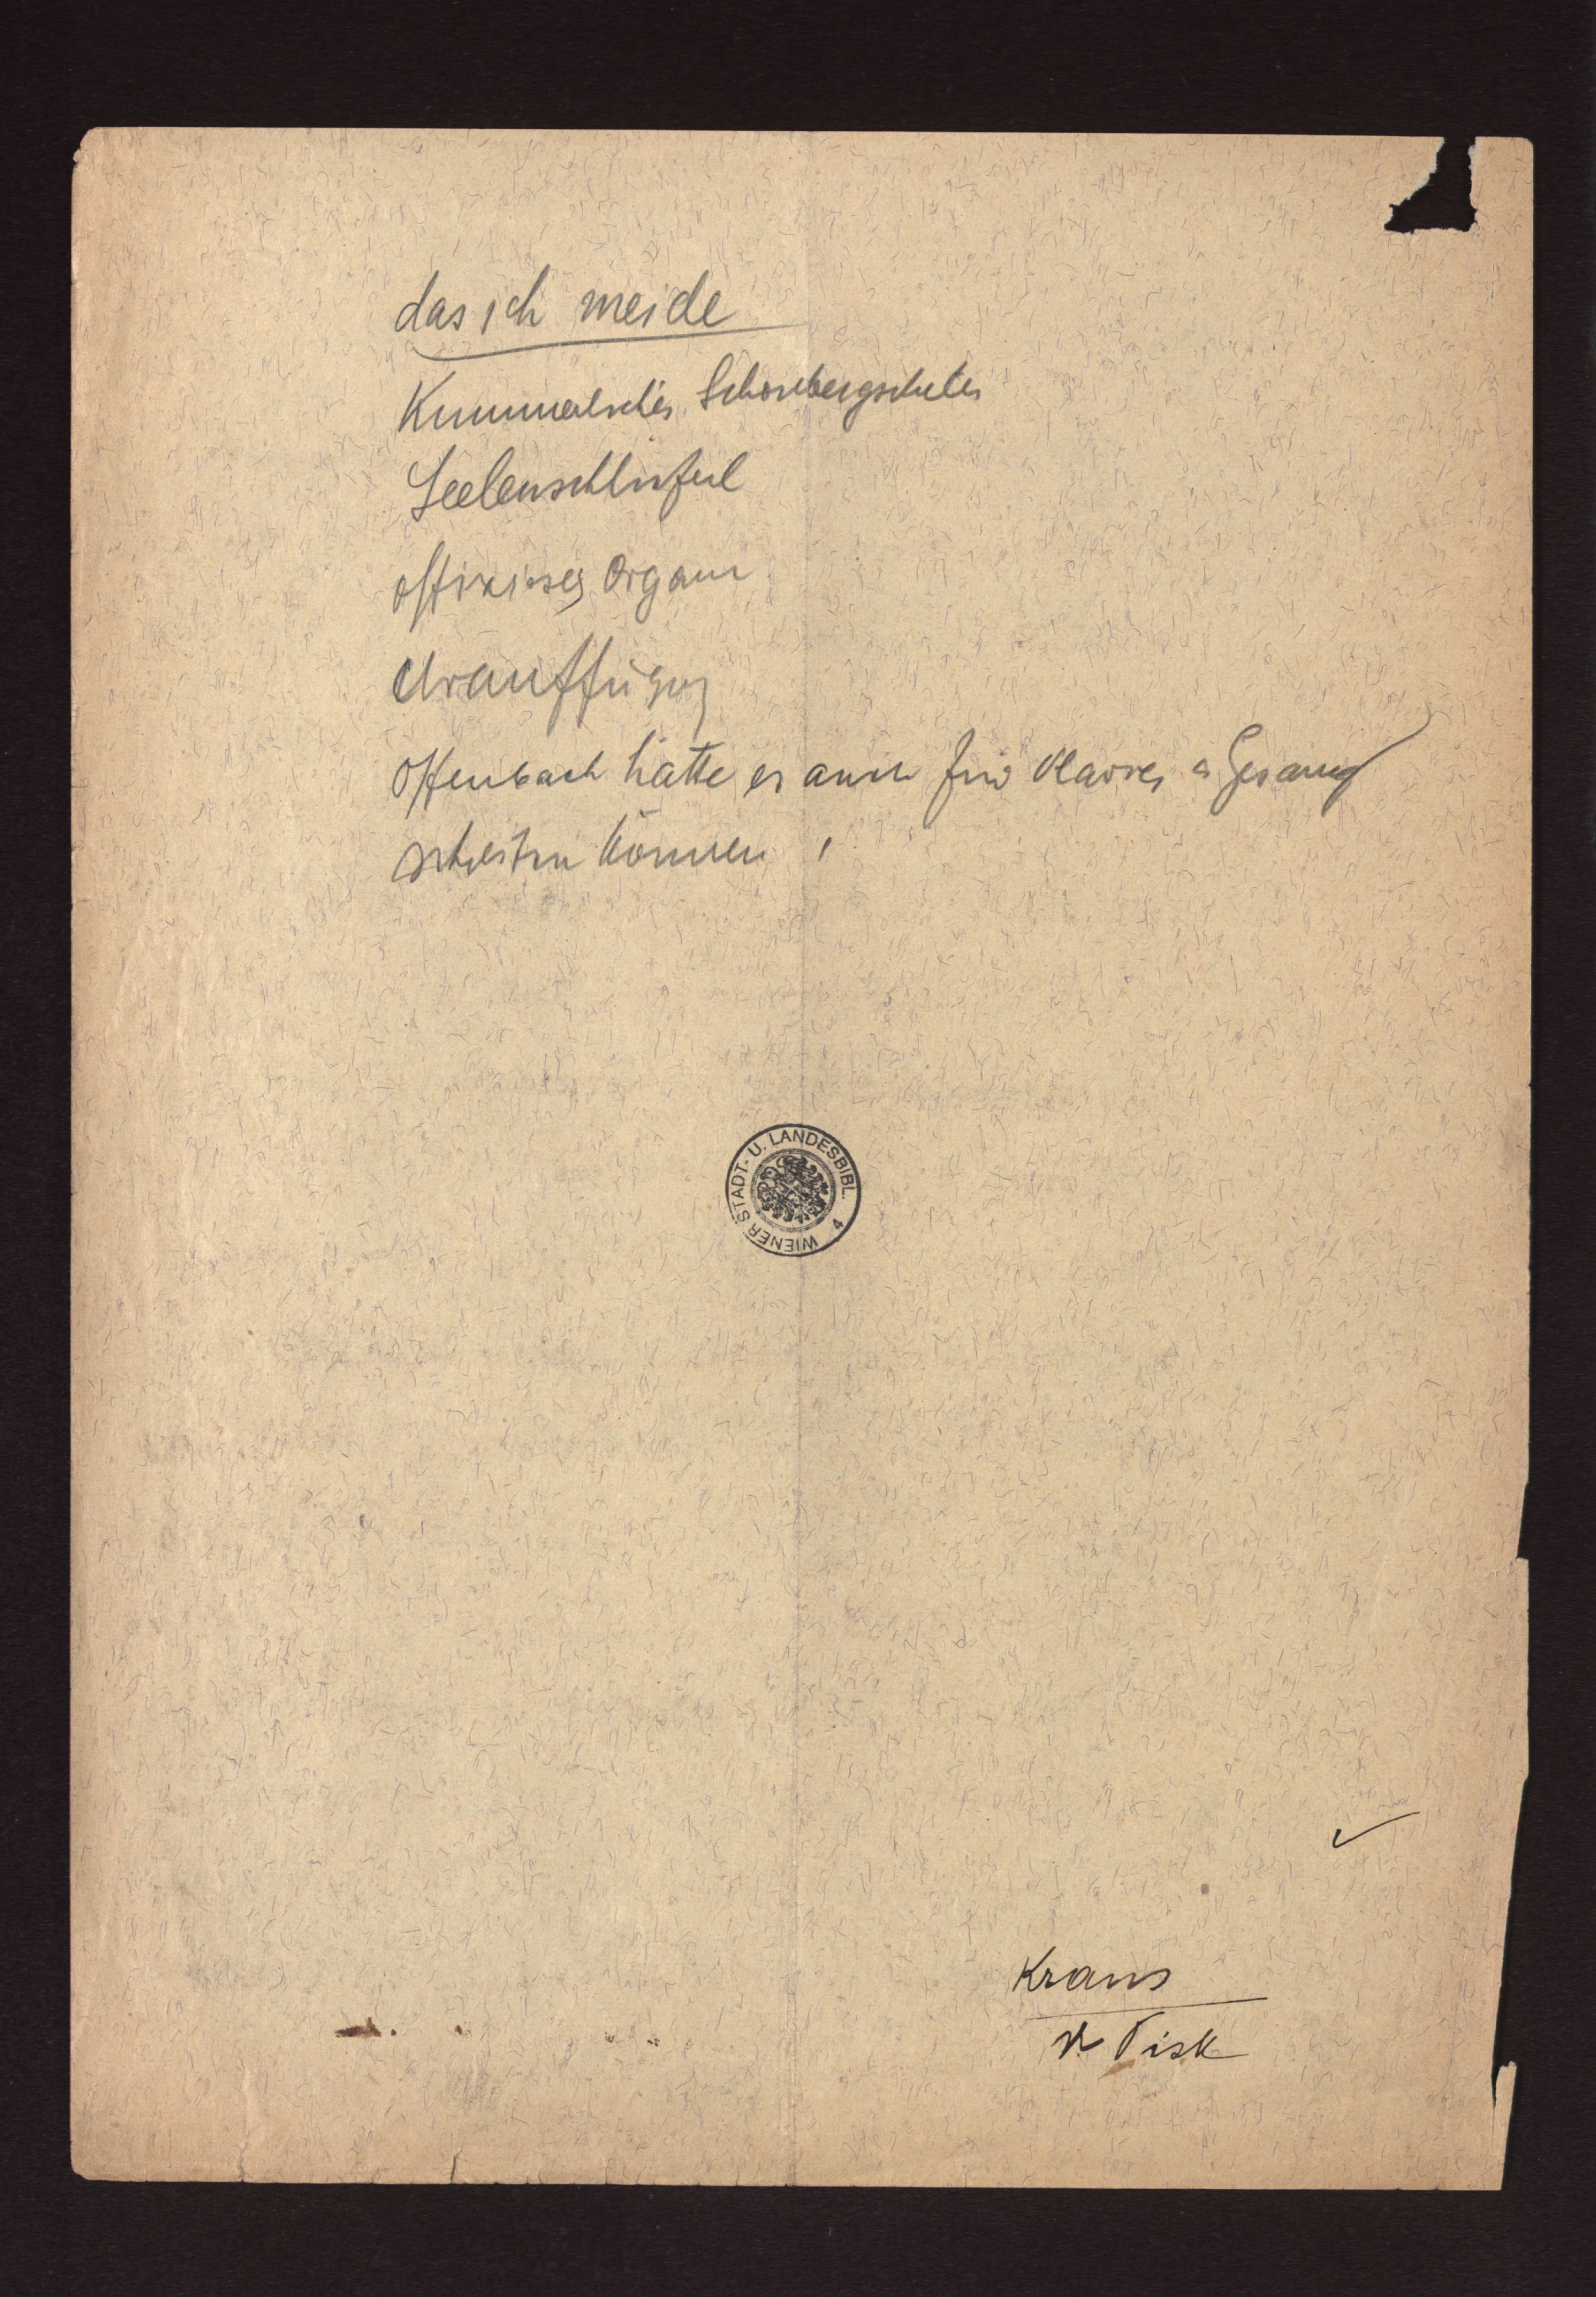 das ich meide
Kummerlicher Schönbergschüler
Seelenschlieferl
offizioses Organ
Uraufführung
Offenbach hätte es auch für Klavier u Gesang
schreiben können
WIENER STADT- U. LANDESBIBL. 4
Kraus
Pisk